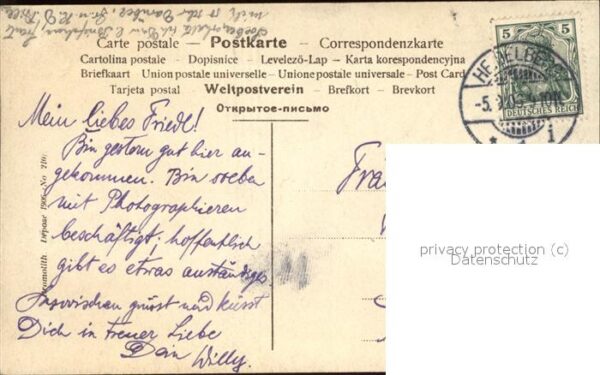 Carte postale – Postkarte – Correspondenzkarte
Cartolina postale – Dopisnice – Levelező-Lap – Karta korespondencyjna
Briefkaart – Union postale universelle – Unione postale universale – Post Card
Tarjeta postal – Weltpostverein – Brefkort – Brevkort
Открытое-письмо
5 5
DEUTSCHES REICH
Mein liebes Friedl!
Bin gestern gut hier an-
gekommen. Bin soeben
mit Photographieren
beschäftigt; hoffentlich
gibt es etwas anständiges.
Inzwischen grüsst und küsst
Dich in treuer Liebe
Dein Willy.
privacy protection (c)
Datenschutz